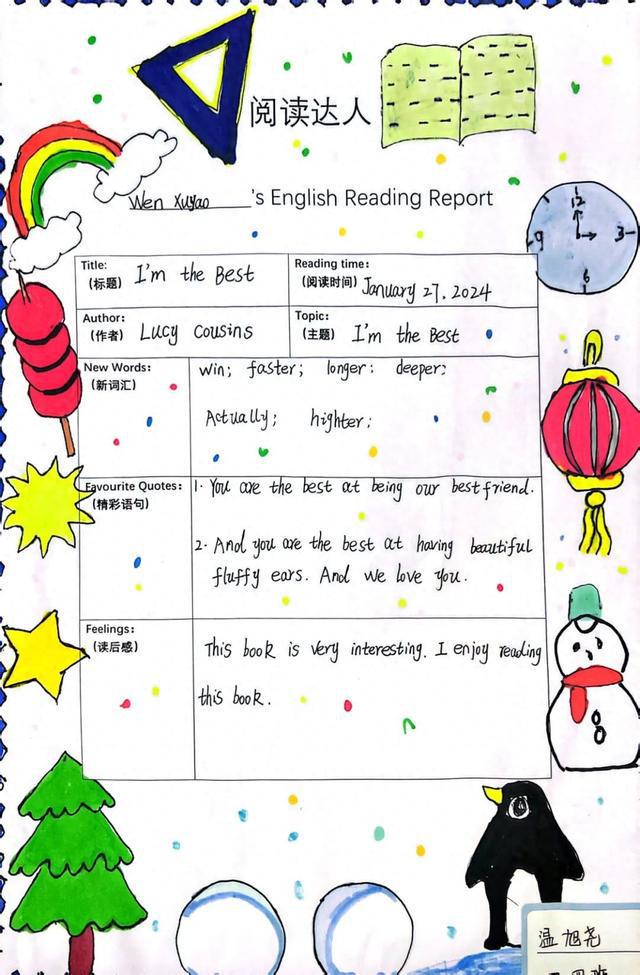 阅读达人
Wen Xuyao 's English Reading Report
12
9 3
6
Title:
(标题) I'm the Best
Reading time:
(阅读时间) January 27, 2024
Author:
(作者) Lucy Cousins
Topic:
(主题) I'm the Best
New Words:
(新词汇)
win; faster; longer; deeper;
Actually; highter;
Favourite Quotes:
(精彩语句)
1. You are the best at being our best friend.
2. And you are the best at having beautiful
fluffy ears. And we love you.
Feelings:
(读后感)
This book is very interesting. I enjoy reading
this book.
温旭尧